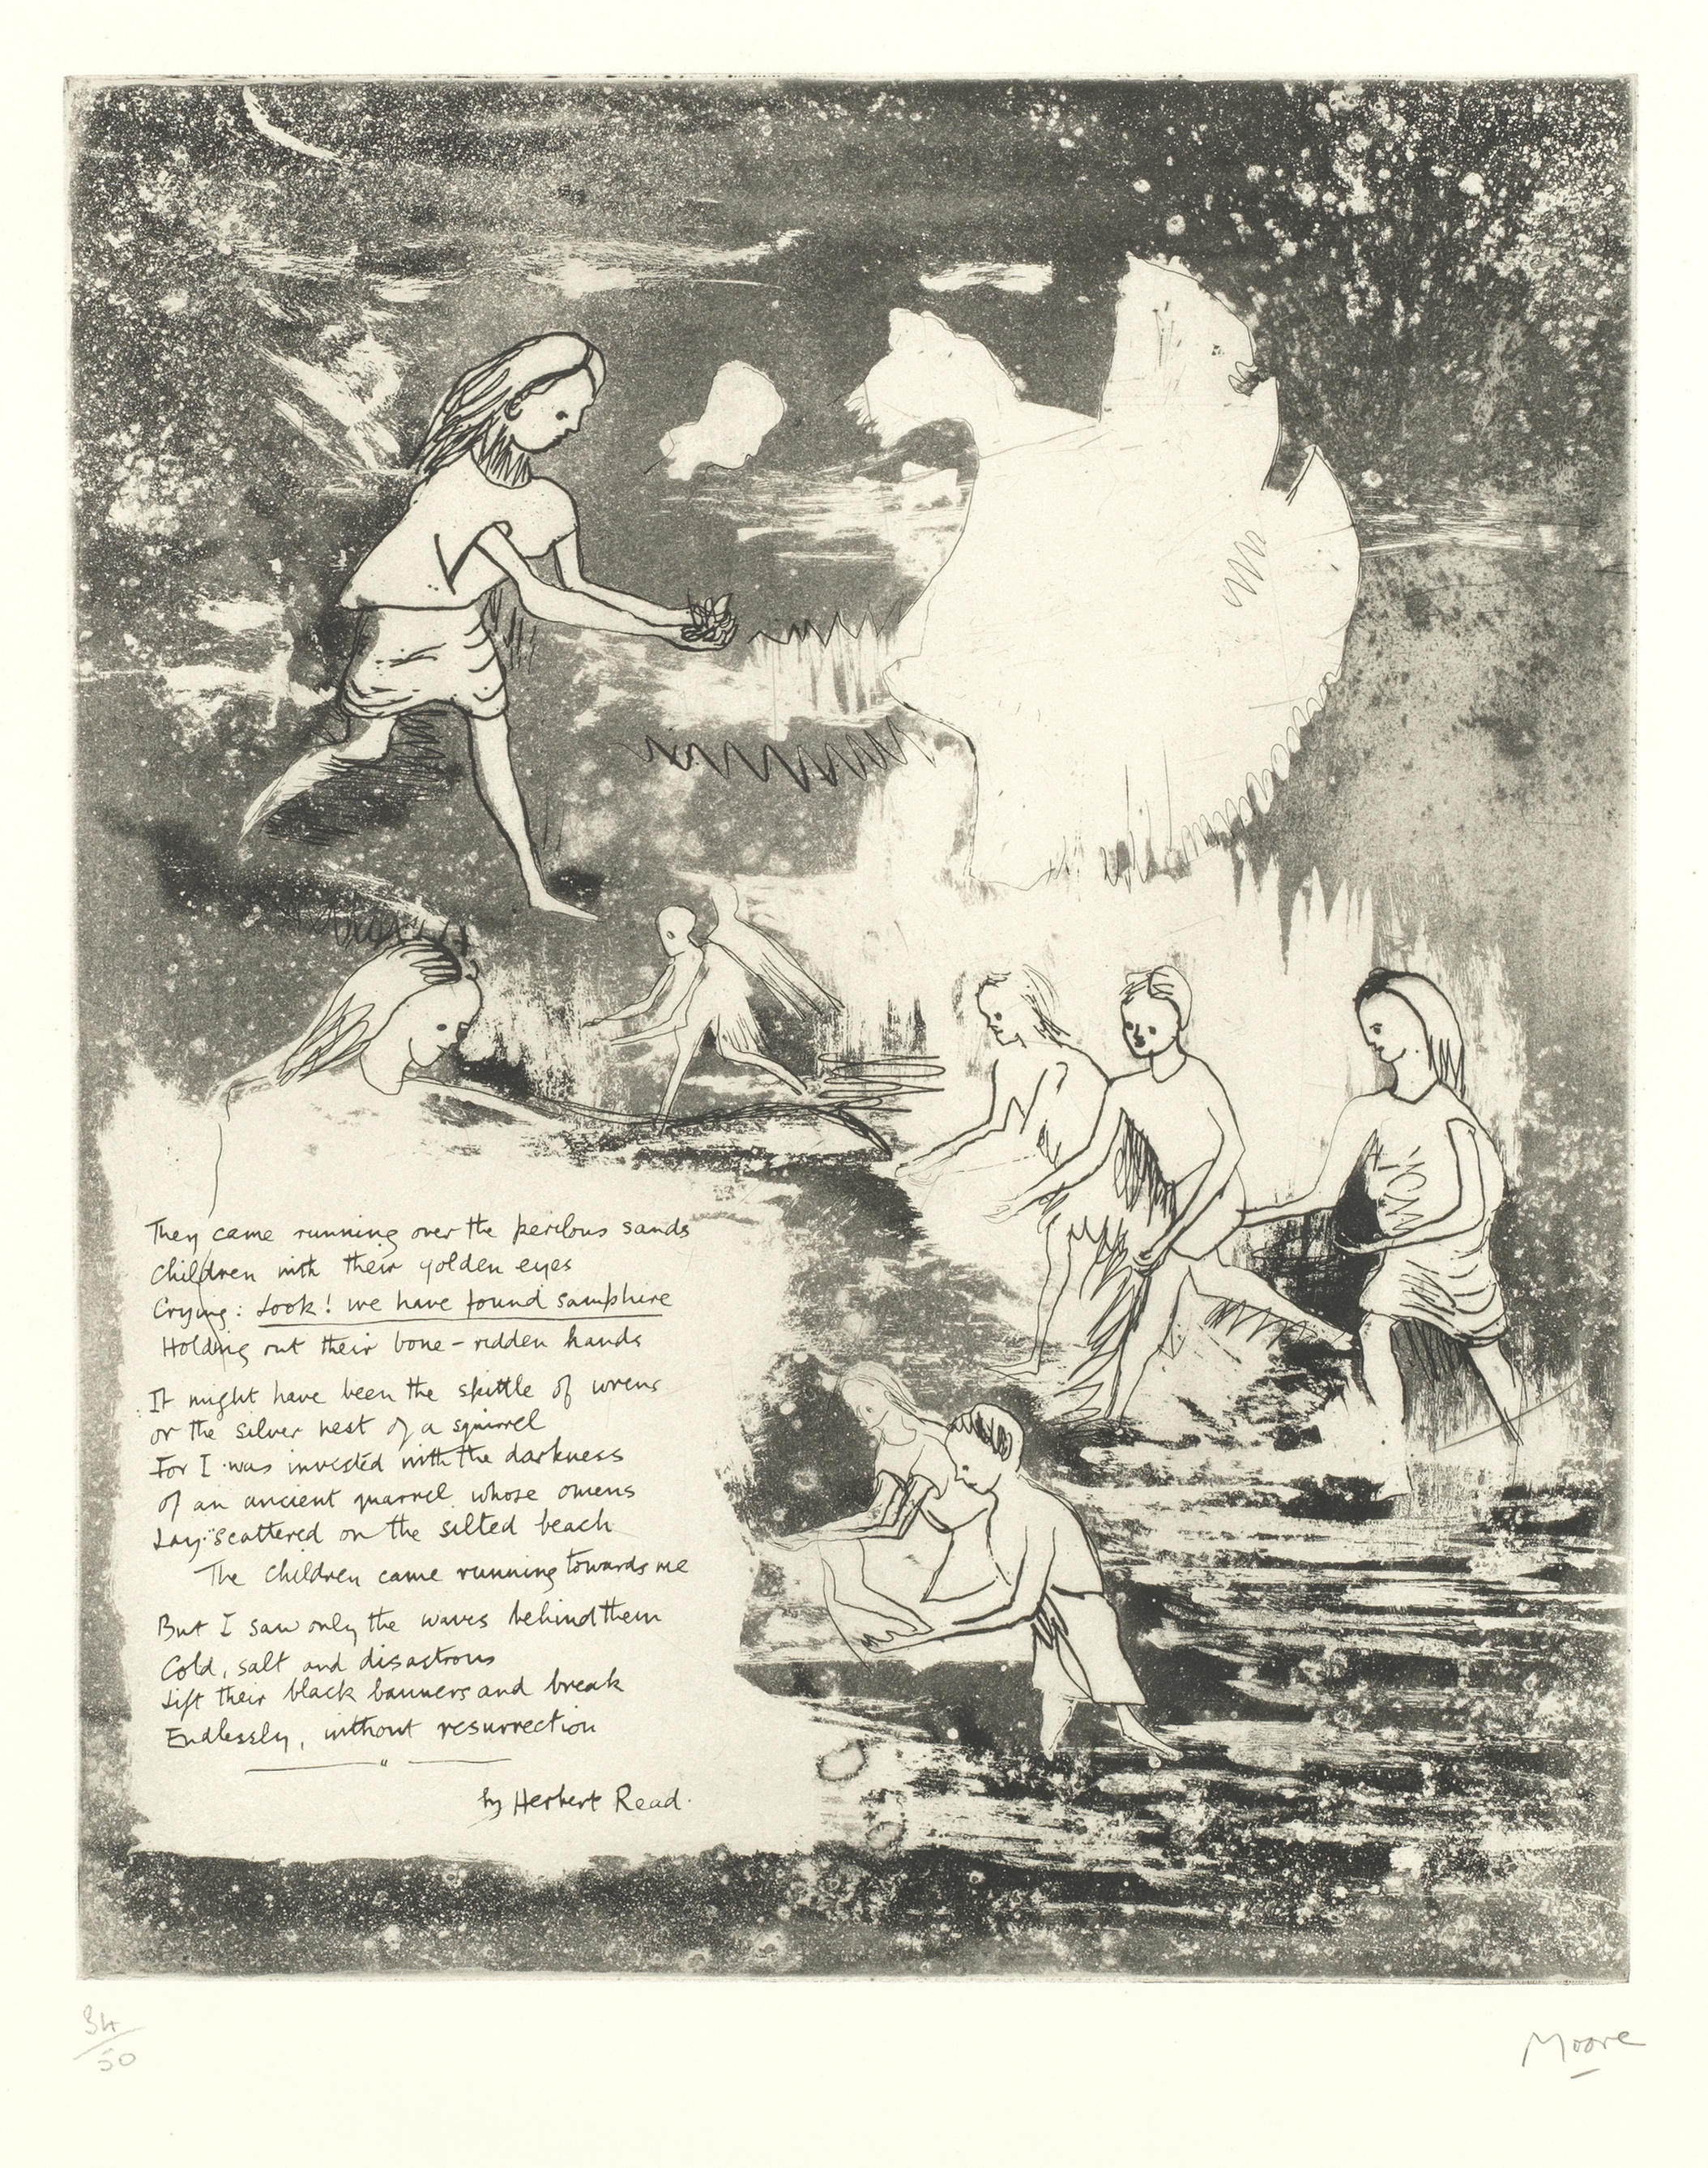 They came running over the perilous sands
Children with their golden eyes
Crying: Look! we have found samphire
Holding out their bone-ridden hands
It might have been the spittle of wrens
or the silver nest of a squirrel
For I was invested with the darkness
Of an ancient quarrel whose omens
Lay scattered on the silted beach
The children came running towards me
But I saw only the waves behind them
Cold, salt and disastrous
Lift their black banners and break
Endlessly, without resurrection
by Herbert Read.
34/50
Moore